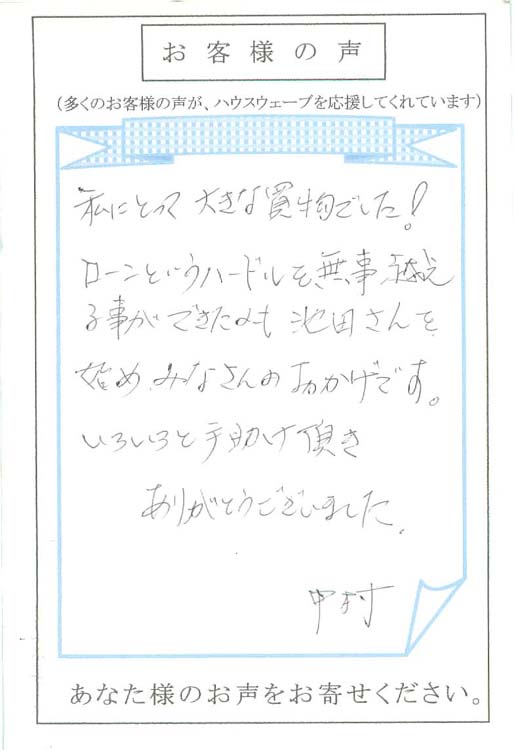 お客様の声
(多くのお客様の声が、ハウスウェーブを応援してくれています)
私にとって大きな買物でした!
ローンというハードルを、無事越え
る事ができたのも池田さんを
始め、みなさんのおかげです。
いろいろと手助け頂き
ありがとうございました。
中村
あなた様のお声をお寄せください。